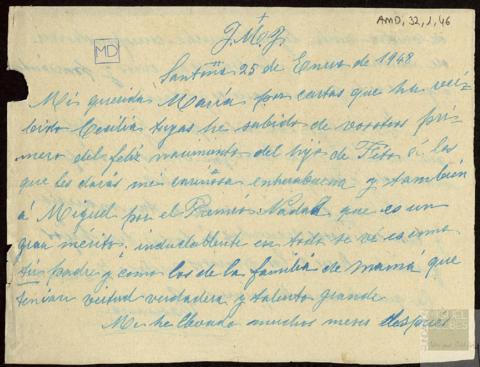 AMD, 32, 1, 46
J.M.J.
MD
25 de Enero de 1948
Mi querida María por cartas que ha reci-
bido Cecilia tuyas he sabido de vosotros pri-
mero del feliz nacimiento del hijo de a los
que les darás mi cariñosa enhorabuena y también
á Miguel por el Premio Nadal que es un
gran merito. indudablemente en todo se vé es como
tú padre y como los de la familia de mamá que
tenian virtud verdadera y talento grande
Me he llevado muchos meses despues